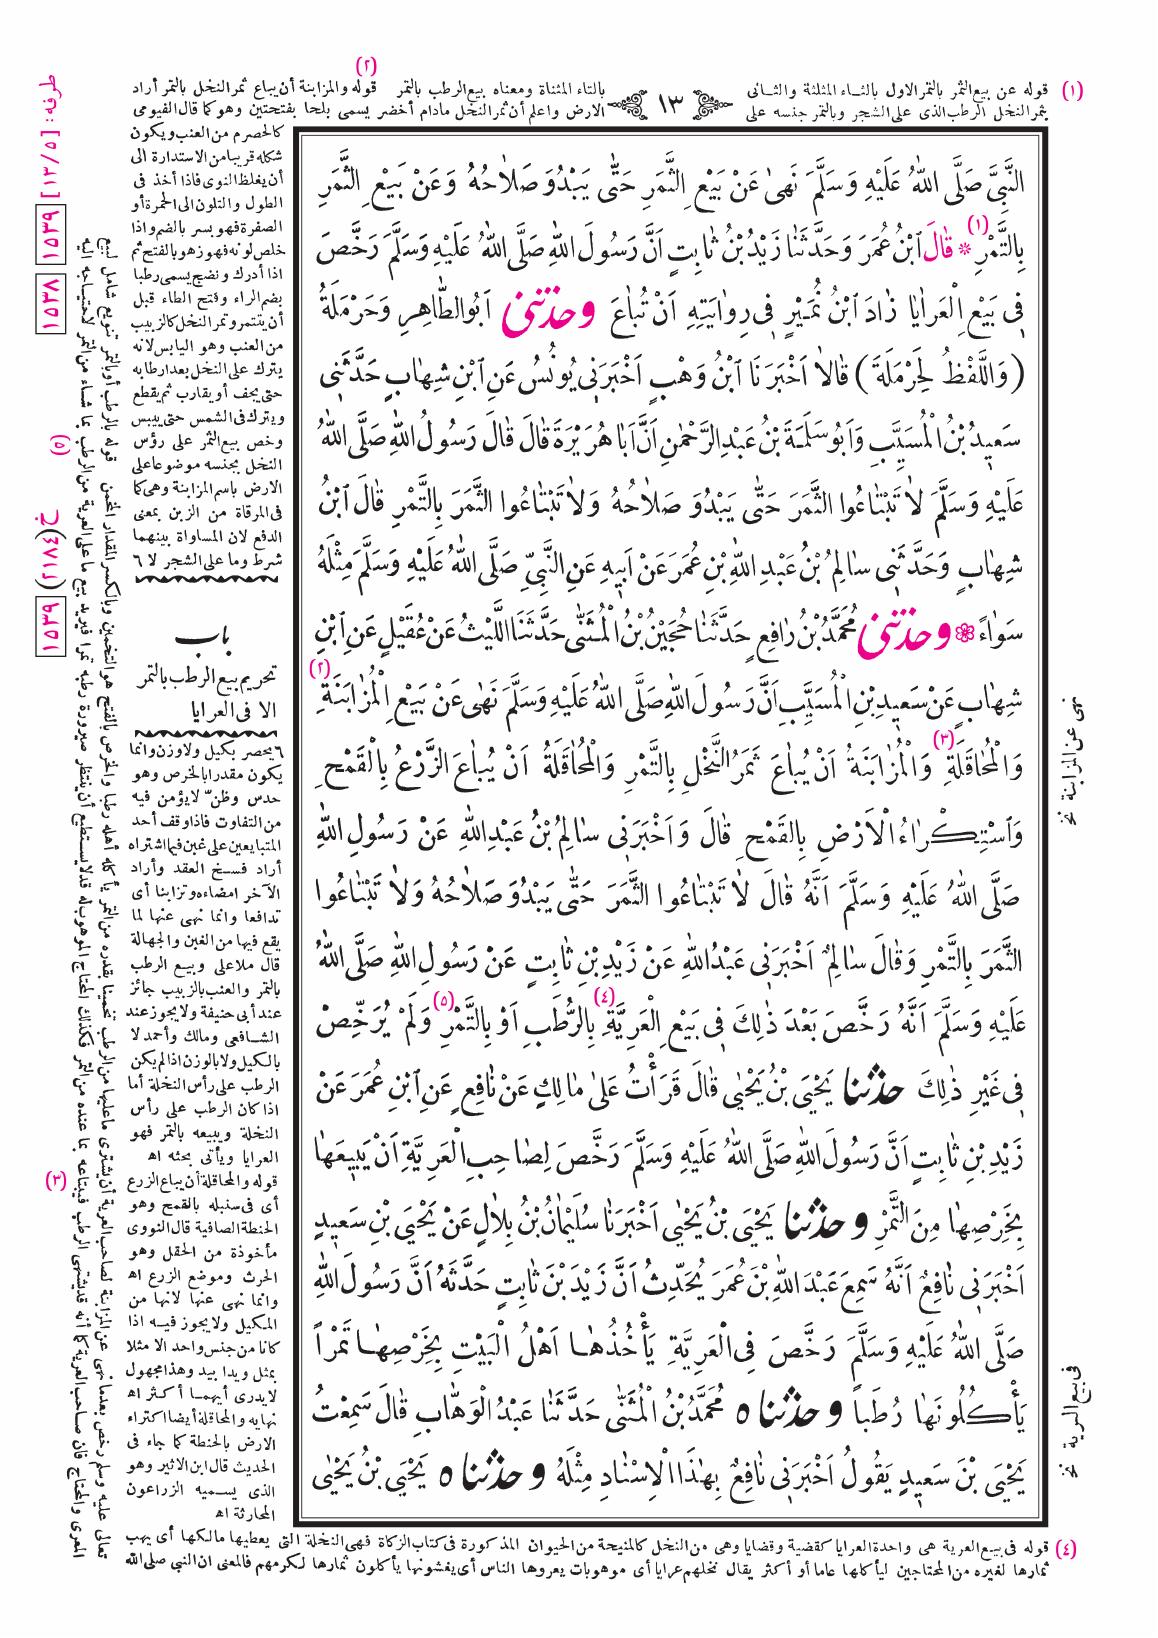 ١٣
(١) قوله عن بيع الثمر بالتمر الاول بالثاء المثلثة والثانى
بالتاء المثناة ومعناه بيع الرطب بالتمر
(٢) قوله والمزابنة أن يباع ثمر النخل بالتمر أراد
بثمر النخل الرطب الذى على الشجر وبالتمر جنسه على
الارض واعلم أن ثمر النخل مادام أخضر يسمى بلحا بفتحتين وهو كما قال الفيومى
النَّبِيَّ صَلَّى اللهُ عَلَيْهِ وَسَلَّمَ نَهىٰ عَنْ بَيْعِ الثَّمَرِ حَتّٰى يَبْدُوَ صَلَاحُهُ وَعَنْ بَيْعِ الثَّمَرِ
بِالتَّمْرِ (١) * قٰالَ ابْنُ عُمَرَ وَحَدَّثَنٰا زَيْدُ بْنُ ثٰابِتٍ اَنَّ رَسُولَ اللهِ صَلَّى اللهُ عَلَيْهِ وَسَلَّمَ رَخَّصَ
فِى بَيْعِ الْعَرٰايٰا زٰادَ ابْنُ نُمَيْرٍ فِى رِوٰايَتِهِ اَنْ تُبٰاعَ وحدثنى اَبُو الطّٰاهِرِ وَحَرْمَلَةُ
(وَاللَّفْظُ لِحَرْمَلَةَ) قٰالاٰ اَخْبَرَنَا ابْنُ وَهْبٍ اَخْبَرَنِى يُونُسُ عَنِ ابْنِ شِهٰابٍ حَدَّثَنِى
سَعِيدُ بْنُ الْمُسَيَّبِ وَاَبُو سَلَمَةَ بْنُ عَبْدِ الرَّحْمٰنِ اَنَّ اَبٰا هُرَيْرَةَ قٰالَ قٰالَ رَسُولُ اللهِ صَلَّى اللهُ
عَلَيْهِ وَسَلَّمَ لاٰ تَبْتٰاعُوا الثَّمَرَ حَتّٰى يَبْدُوَ صَلاٰحُهُ وَلاٰ تَبْتٰاعُوا الثَّمَرَ بِالتَّمْرِ قٰالَ ابْنُ
شِهٰابٍ وَحَدَّثَنِى سٰالِمُ بْنُ عَبْدِ اللهِ بْنِ عُمَرَ عَنْ اَبِيهِ عَنِ النَّبِيِّ صَلَّى اللهُ عَلَيْهِ وَسَلَّمَ مِثْلَهُ
سَوٰاءً وحدثنى مُحَمَّدُ بْنُ رٰافِعٍ حَدَّثَنٰا حُجَيْنُ بْنُ الْمُثَنّٰى حَدَّثَنَا اللَّيْثُ عَنْ عُقَيْلٍ عَنِ ابْنِ
شِهٰابٍ عَنْ سَعِيدِ بْنِ الْمُسَيَّبِ اَنَّ رَسُولَ اللهِ صَلَّى اللهُ عَلَيْهِ وَسَلَّمَ نَهٰى عَنْ بَيْعِ الْمُزٰابَنَةِ (٢)
وَالْمُحٰاقَلَةِ (٣) وَالْمُزٰابَنَةُ اَنْ يُبٰاعَ ثَمَرُ النَّخْلِ بِالتَّمْرِ وَالْمُحٰاقَلَةُ اَنْ يُبٰاعَ الزَّرْعُ بِالْقَمْحِ
وَاسْتِكْرٰاءُ الْاَرْضِ بِالْقَمْحِ قٰالَ وَاَخْبَرَنِى سٰالِمُ بْنُ عَبْدِ اللهِ عَنْ رَسُولِ اللهِ
صَلَّى اللهُ عَلَيْهِ وَسَلَّمَ اَنَّهُ قٰالَ لاٰ تَبْتٰاعُوا الثَّمَرَ حَتّٰى يَبْدُوَ صَلاٰحُهُ وَلاٰ تَبْتٰاعُوا
الثَّمَرَ بِالتَّمْرِ وَقٰالَ سٰالِمٌ اَخْبَرَنِى عَبْدُ اللهِ عَنْ زَيْدِ بْنِ ثٰابِتٍ عَنْ رَسُولِ اللهِ صَلَّى اللهُ
عَلَيْهِ وَسَلَّمَ اَنَّهُ رَخَّصَ بَعْدَ ذٰلِكَ فِى بَيْعِ الْعَرِيَّةِ (٤) بِالرُّطَبِ اَوْ بِالتَّمْرِ (٥) وَلَمْ يُرَخِّصْ
فِى غَيْرِ ذٰلِكَ حدثنا يَحْيَى بْنُ يَحْيٰى قٰالَ قَرَأْتُ عَلىٰ مٰالِكٍ عَنْ نٰافِعٍ عَنِ ابْنِ عُمَرَ عَنْ
زَيْدِ بْنِ ثٰابِتٍ اَنَّ رَسُولَ اللهِ صَلَّى اللهُ عَلَيْهِ وَسَلَّمَ رَخَّصَ لِصٰاحِبِ الْعَرِيَّةِ اَنْ يَبِيعَهٰا
بِخَرْصِهٰا مِنَ التَّمْرِ وحدثنا يَحْيَى بْنُ يَحْيٰى اَخْبَرَنٰا سُلَيْمٰانُ بْنُ بِلاٰلٍ عَنْ يَحْيَى بْنِ سَعِيدٍ
اَخْبَرَنِى نٰافِعٌ اَنَّهُ سَمِعَ عَبْدَ اللهِ بْنَ عُمَرَ يُحَدِّثُ اَنَّ زَيْدَ بْنَ ثٰابِتٍ حَدَّثَهُ اَنَّ رَسُولَ اللهِ
صَلَّى اللهُ عَلَيْهِ وَسَلَّمَ رَخَّصَ فِى الْعَرِيَّةِ يَأْخُذُهٰا اَهْلُ الْبَيْتِ بِخَرْصِهٰا تَمْرًا
يَأْكُلُونَهٰا رُطَباً وحدثنا ٥ مُحَمَّدُ بْنُ الْمُثَنّٰى حَدَّثَنٰا عَبْدُ الْوَهّٰابِ قٰالَ سَمِعْتُ
يَحْيَى بْنَ سَعِيدٍ يَقُولُ اَخْبَرَنِى نٰافِعٌ بِهٰذَا الْاِسْنٰادِ مِثْلَهُ وحدثنا ٥ يَحْيَى بْنُ يَحْيٰى
كالحصرم من العنب ويكون
شكله قريبا من الاستدارة الى
أن يغلظ النوى فاذا أخذ فى
الطول والتلون الى الحمرة أو
الصفرة فهو بسر بالضم واذا
خلص لونه فهو زهو بالفتح ثم
اذا أدرك ونضج يسمى رطبا
بضم الراء وفتح الطاء قبل
أن يتتمر وتمر النخل كالزبيب
من العنب وهو اليابس لانه
يترك على النخل بعد ارطابه
حتى يجف أو يقارب ثم يقطع
ويترك فى الشمس حتى ييبس
وخص بيع الثمر على رؤس
النخل بجنسه موضوعا على
الارض باسم المزابنة وهى كما
فى المرقاة من الزبن بمعنى
الدفع لان المساواة بينهما
شرط وما على الشجر لا ٦
باب
تحريم بيع الرطب بالتمر
الا فى العرايا
٦ يحصر بكيل ولا وزن وانما
يكون مقدرا بالخرص وهو
حدس وظنّ لا يؤمن فيه
من التفاوت فاذا وقف أحد
المتبايعين على غبن فيما اشتراه
أراد فسخ العقد وأراد
الآخر امضاءه وتزابنا أى
تدافعا وانما نهى عنها لما
يقع فيها من الغبن والجهالة
قال ملا على وبيع الرطب
بالتمر والعنب بالزبيب جائز
عند أبى حنيفة ولا يجوز عند
الشافعى ومالك وأحمد لا
بالكيل ولا بالوزن اذا لم يكن
الرطب على رأس النخلة أما
اذا كان الرطب على رأس
النخلة ويبيعه بالتمر فهو
العرايا ويأتى بحثه اه
(٣) قوله والمحاقلة أن يباع الزرع
أى فى سنبله بالقمح وهو
الحنطة الصافية قال النووى
مأخوذة من الحقل وهو
الحرث وموضع الزرع اه
وانما نهى عنها لانها من
المكيل ولا يجوز فيه اذا
كانا من جنس واحد الا مثلا
بمثل ويدا بيد وهذا مجهول
لا يدرى أيهما أكثر اه
نهايه والمحاقلة أيضا اكتراء
الارض بالحنطة كما جاء فى
الحديث قال ابن الاثير وهو
الذى يسميه الزراعون
المحارثة اه
(٤) قوله فى بيع العرية هى واحدة العرايا كقضية وقضايا وهى من النخل كالمنيحة من الحيوان المذكورة فى كتاب الزكاة فهى النخلة التى يعطيها مالكها أى يهب
ثمارها لغيره من المحتاجين ليأكلها عاما أو أكثر يقال نخلهم عرايا أى موهوبات يعروها الناس أى يغشونها يأكلون ثمارها لكرمهم فالمعنى ان النبى صلى الله
تعالى عليه وسلم رخص بعدما نهى عن المزابنة لصاحب العرية أن يشترى ما عليها من الرطب تخمينا بقدره من التمر يأكله أهله رطبا والخرص بالفتح هو التخمين وبالكسر المقدار المخمن
(٥) قوله بالرطب أو بالتمر تنويع شامل لبيع
نهى عن المزابنة نخ
فى بيع العرية نخ
طرفه: [١٢/٥] ١٥٣٩
١٥٣٨
خ (٢١٨٤) ١٥٣٩